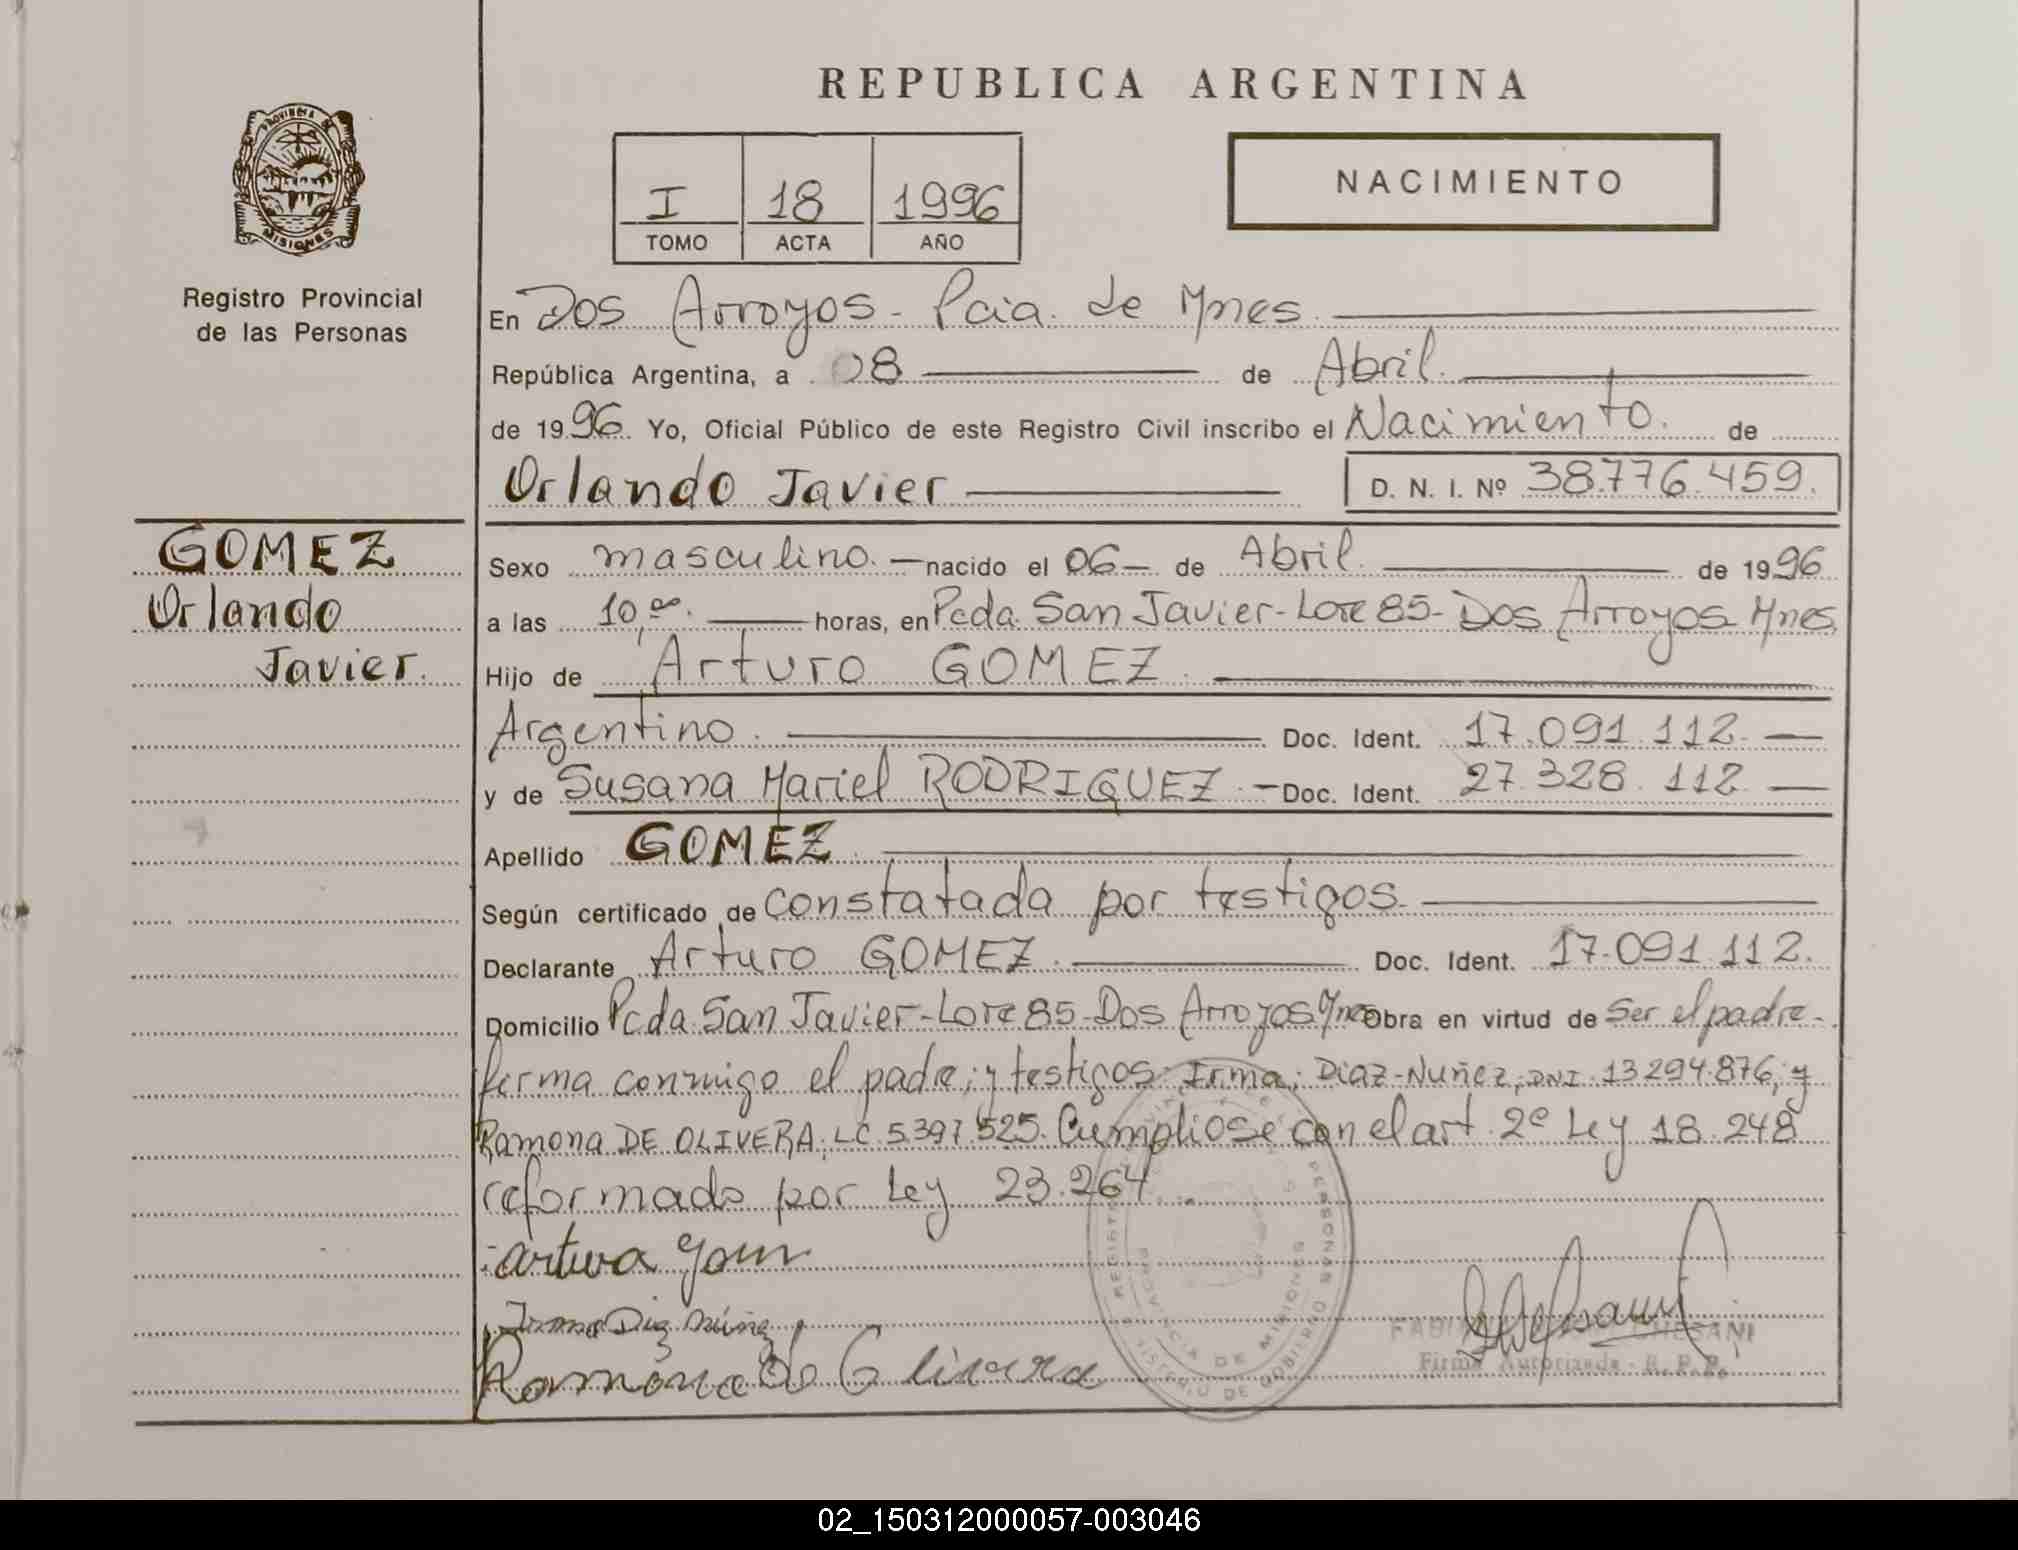 REPUBLICA ARGENTINA
PROVINCIA DE
MISIONES
Registro Provincial
de las Personas
I 18 1996
TOMO ACTA AÑO
NACIMIENTO
En Dos Arroyos - Pcia. de Mnes.
República Argentina, a 08 de Abril.
de 1996. Yo, Oficial Público de este Registro Civil inscribo el Nacimiento. de
Orlando Javier D. N. I. Nº 38.776.459.
GOMEZ
Orlando
Javier.
Sexo masculino. nacido el 06 de Abril. de 1996
a las 10,00. horas, en Pcda. San Javier - Lote 85 - Dos Arroyos Mnes.
Hijo de Arturo GOMEZ.
Argentino. Doc. Ident. 17.091.112.
y de Susana Mariel RODRIGUEZ. Doc. Ident. 27.328.112.
Apellido GOMEZ.
Según certificado de constatada por testigos.
Declarante Arturo GOMEZ. Doc. Ident. 17.091.112.
Domicilio Pcda. San Javier - Lote 85 - Dos Arroyos Mnes Obra en virtud de Ser el padre.
firma conmigo el padre; y testigos: Irma; Diaz-Nuñez, DNI. 13294.876, y
Ramona DE OLIVERA; LC. 5.397.525. Cumpliose con el art. 2º Ley 18.248
reformado por Ley 23.264.
Irma Diaz
Ramona de Olivera
PROVINCIA DE MISIONES
MINISTERIO DE GOBIERNO
Firma Autorizada - R. P. P.
02_150312000057-003046